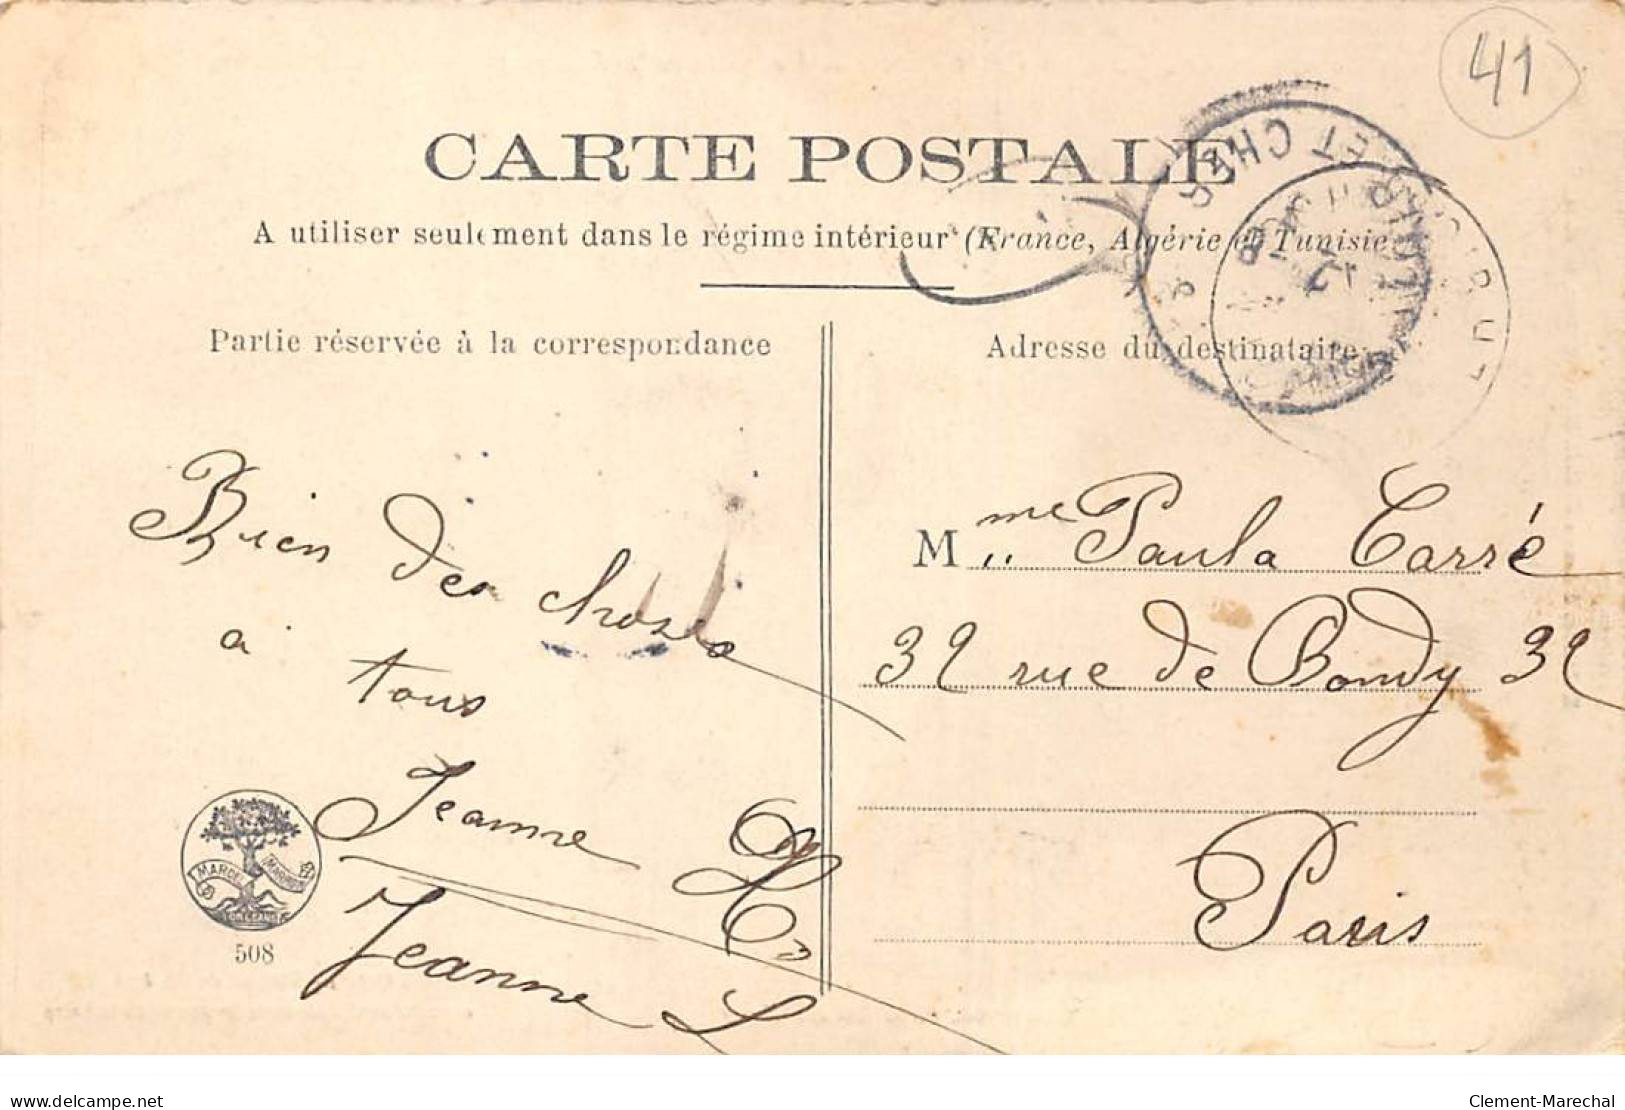 41
CARTE POSTALE
A utiliser seulement dans le régime intérieur (France, Algérie et Tunisie
Partie réservée à la correspondance
Adresse du destinataire
ET CHER
Bien des choses
à tous
Jeanne H
Jeanne L
MARCEL MARRON
ORLEANS
508
Mme Paula Carré
32 rue de Bondy 32
Paris
delcampe.net
Clement-Marechal